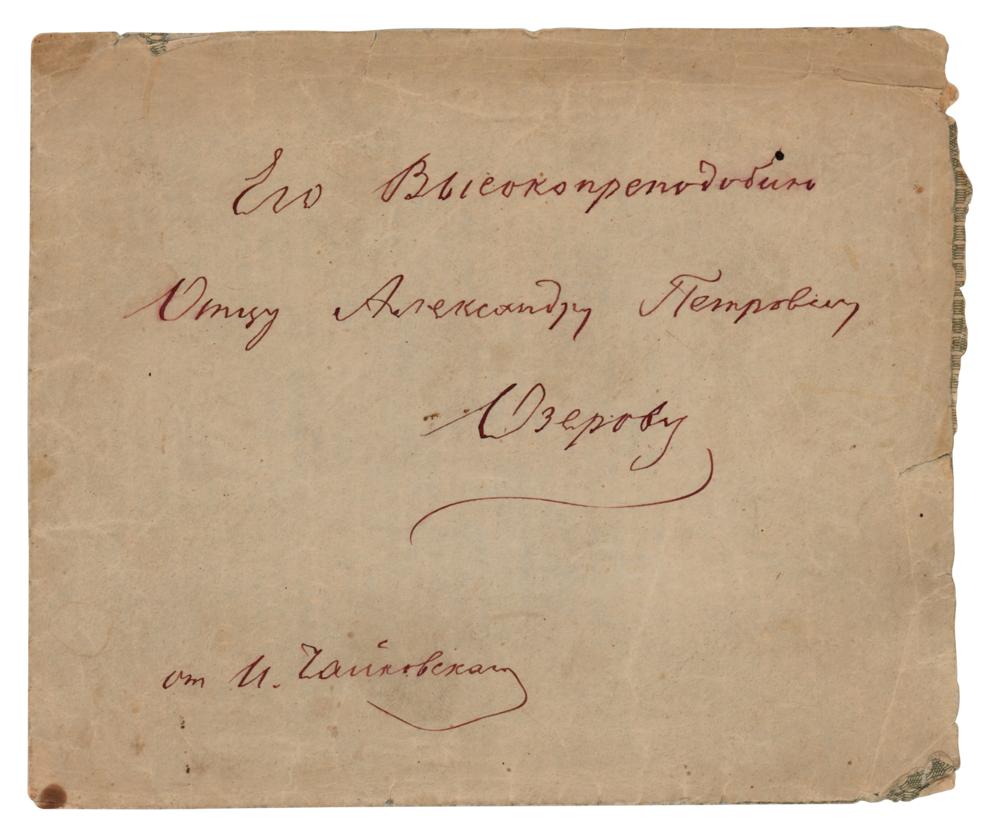 Его Высокопреподобию
Отцу Александру Петровичу
Озерову
от П. Чайковскаго